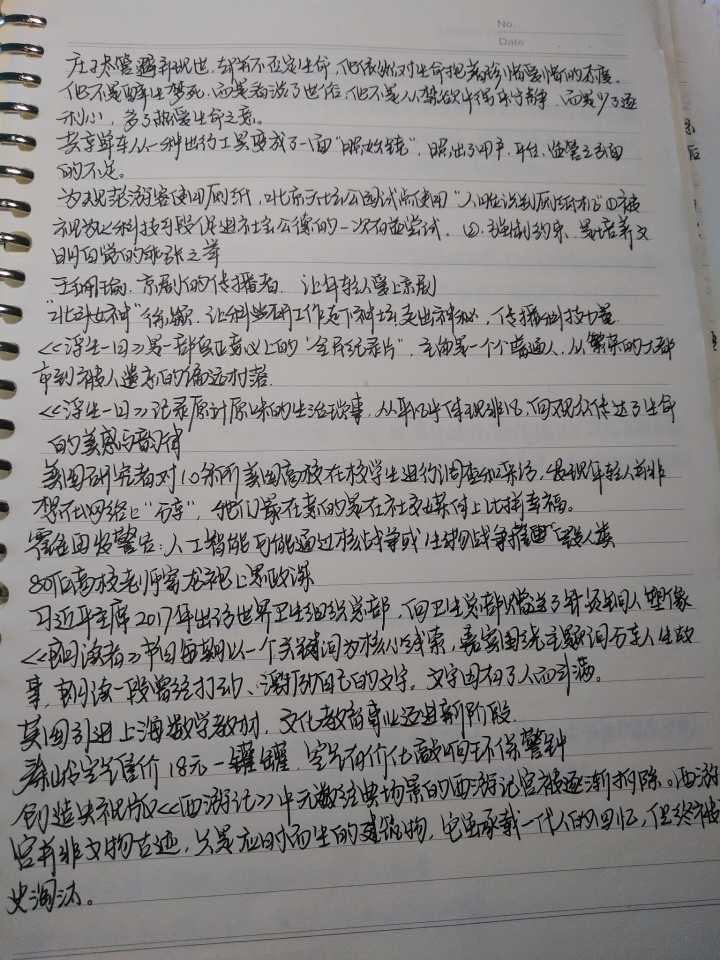 No.
Date
庄子尽管超离现世,却并不否定生命,他依然对生命抱着珍惜爱惜的态度。
他不是醉生梦死,而是看淡了世俗,他不是人禁欲中得乐守静,而是少了逐
利心,多了热爱生命之意。
共享单车从一种出行工具变成了一面“照妖镜”,照出了用户、平台、监管三方面
的不足。
为规范游客使用厕纸,北京天坛公园试点使用“人脸识别厕纸机”①被
视为以科技手段促进社会公德的一次有益尝试。②.强制约束,是培养文
明自觉的乖张之举
王珮瑜,京剧的传播者,让年轻人爱上京剧
“北斗女神”徐颖,让科学研工作走下神坛走出神秘,传播科技力量
《浮生一日》是一部真正意义上的“全民纪录片”,主角是一个个普通人,从繁荣的大都
市到被人遗忘的偏远村落.
《浮生一日》记录原汁原味的生活琐事,从平凡中体现非凡,向观众传达了生命
的美感与韵律
美国研究者对10余所美国高校在校学生进行调查和采访,发现年轻人并非
想在网络上“分享”,他们最在意的是在社交媒体上比拼幸福。
霍金再发警告:人工智能可能通过核战争或生物战争摧毁人类
80后高校老师穿龙袍上思政课
习近平主席2017年出访世界卫生组织总部,向卫生总部赠送了针灸铜人塑像
《朗读者》节目每期以一个关键词为核心线索,嘉宾围绕主题词分享人生故
事,朗读一段曾经打动、激励自己的文字,文字因有了人而丰满。
英国引进上海数学教材,文化教育事业迈进新阶段.
泰山空气售价18元一罐,空气有价化敲响环保警钟
创造央视版《西游记》中无数经典场景的西游记宫被逐渐拆除。西游
宫并非文物古迹,只是应时而生的建筑物,它虽承载一代人的回忆,但终被
史淘汰。